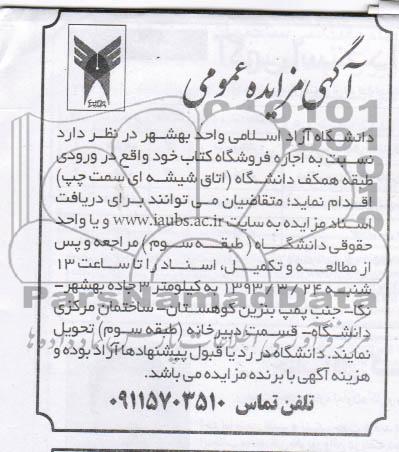 آگهی مزایده عمومی
دانشگاه آزاد اسلامی واحد بهشهر در نظر دارد
نسبت به اجاره فروشگاه کتاب خود واقع در ورودی
طبقه همکف دانشگاه (اتاق شیشه ای سمت چپ)
اقدام نماید؛ متقاضیان می توانند برای دریافت
اسناد مزایده به سایت www.iaubs.ac.ir و یا واحد
حقوقی دانشگاه (طبقه سوم) مراجعه و پس
از مطالعه و تکمیل، اسناد را تا ساعت ۱۳
شنبه ۱۳۹۳/۳/۲۴ به کیلومتر ۳ جاده بهشهر-
نکا- جنب پمپ بنزین کوهستان- ساختمان مرکزی
دانشگاه- قسمت دبیرخانه (طبقه سوم) تحویل
نمایند. دانشگاه در رد یا قبول پیشنهادها آزاد بوده و
هزینه آگهی با برنده مزایده می باشد.
تلفن تماس ۰۹۱۱۵۷۰۳۵۱۰
ParsNamadData